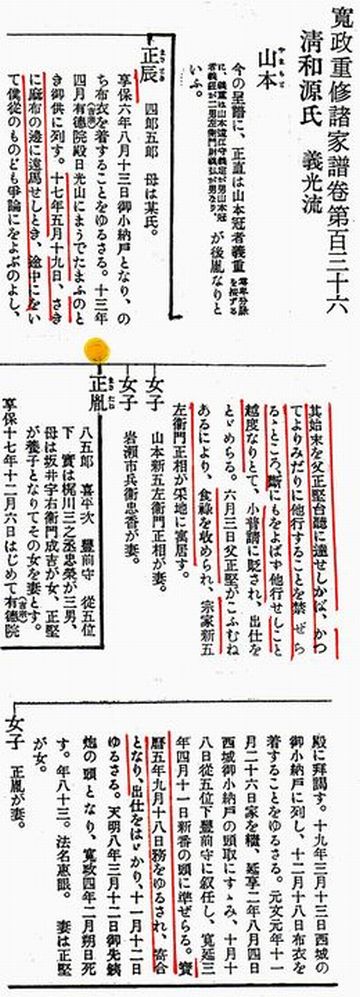 寛政重修諸家譜卷第百三十六
清和源氏 義光流
山本
やまもと
今の呈譜に、正直は山本冠者義重
が後胤なりと
いふ。
正辰
まさとき
四郎五郎 母は某氏。
享保六年八月十三日御小納戸となり、の
ち布衣を着することをゆるさる。十三年
四月有德院殿日光山にまうでたまふのと
(吉宗)
き御供に列す。十七年五月十九日、さき
に麻布の邊に遠馬せしとき、途中にをい
て僕從のものども爭論にをよぶのよし、
其始末を父正堅台聽に達せしかば、かつ
てよりみだりに他行することを禁ぜら
るゝところ、斷にもをよばず他行せしこと
越度なりとて、小普請に貶され、出仕を
とゞめらる。六月三日父正堅がこふむね
あるにより、食祿を收められ、宗家新五
左衞門正相が采地に寓居す。
女子 山本新五左衞門正相が妻。
女子 岩瀨市兵衞忠香が妻。
正胤
まさたね
八五郎 喜平次 豐前守 從五位
下 實は梶川三之丞忠榮が三男、
母は坂井宇右衞門成吉が女、正堅
が養子となりてその女を妻とす。
享保十七年十二月六日はじめて有德院
(吉宗)
殿に拜謁す。十九年三月十三日西城の
御小納戸に列し、十二月十八日布衣を
着することをゆるさる。元文元年十一
月二十六日家を繼、延享二年八月四日
西城御小納戸の頭取にすゝみ、十月十
八日從五位下豐前守に叙任し、寬延三
年四月十一日新番の頭に準ぜらる。寶
曆五年九月十八日務をゆるされ、寄合
となり、出仕をはゞかり、十一月十二日
ゆるさる。天明八年三月十二日御先鐵
炮の頭となり、寬政四年二月朔日死
す。年八十三。法名惠眼。 妻は正堅
が女。
女子 正胤が妻。